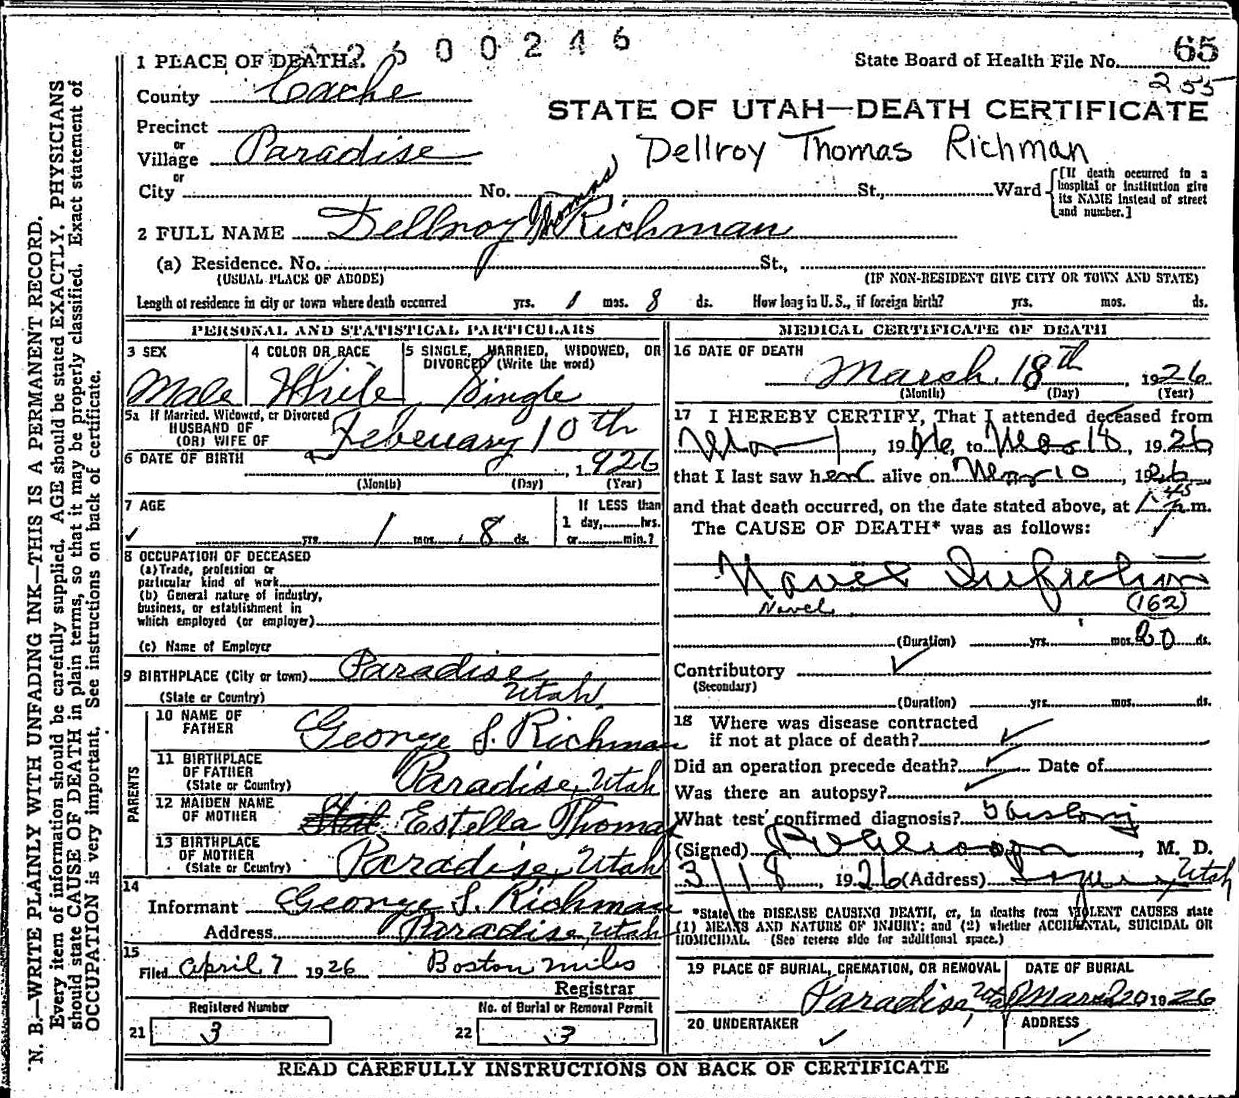 2600246
1 PLACE OF DEATH
State Board of Health File No. 65
255
County Cache
STATE OF UTAH—DEATH CERTIFICATE
Precinct
or
Village Paradise
Dellroy Thomas Richman
or
City No. St., Ward
[If death occurred in a hospital or institution give its NAME instead of street and number.]
2 FULL NAME Dellroy Thomas Richman
(a) Residence. No. St.,
(USUAL PLACE OF ABODE) (IF NON-RESIDENT GIVE CITY OR TOWN AND STATE)
Length of residence in city or town where death occurred yrs. 1 mos. 8 ds. How long in U. S., if foreign birth? yrs. mos. ds.
PERSONAL AND STATISTICAL PARTICULARS
3 SEX 4 COLOR OR RACE 5 SINGLE, MARRIED, WIDOWED, OR DIVORCED (Write the word)
Male White Single
5a If Married, Widowed, or Divorced
HUSBAND OF
(OR) WIFE OF
February 10th
6 DATE OF BIRTH , 1926
(Month) (Day) (Year)
7 AGE If LESS than
1 day, hrs.
yrs. 1 mos. 8 ds. or min.?
8 OCCUPATION OF DECEASED
(a) Trade, profession or
particular kind of work
(b) General nature of industry,
business, or establishment in
which employed (or employer)
(c) Name of Employer
9 BIRTHPLACE (City or town) Paradise
(State or Country) Utah
PARENTS
10 NAME OF FATHER George S. Richman
11 BIRTHPLACE OF FATHER (State or Country) Paradise, Utah
12 MAIDEN NAME OF MOTHER Estella Thomas
13 BIRTHPLACE OF MOTHER (State or Country) Paradise, Utah
14
Informant George S. Richman
Address Paradise, Utah
15
Filed April 7 1926 Boston Miles
Registrar
Registered Number No. of Burial or Removal Permit
21 3 22 3
MEDICAL CERTIFICATE OF DEATH
16 DATE OF DEATH
March 18th, 1926
(Month) (Day) (Year)
17 I HEREBY CERTIFY, That I attended deceased from
Mar 1, 1926, to Mar 18, 1926
that I last saw her alive on Mar 10, 1926
and that death occurred, on the date stated above, at 1 45 p.m.
The CAUSE OF DEATH* was as follows:
Navel Infection
Navel (162)
(Duration) yrs. mos. 20 ds.
Contributory
(Secondary)
(Duration) yrs. mos. ds.
18 Where was disease contracted
if not at place of death?
Did an operation precede death? Date of
Was there an autopsy?
What test confirmed diagnosis? History
(Signed) , M. D.
3/18, 1926 (Address) Utah
*State the DISEASE CAUSING DEATH, or, in deaths from VIOLENT CAUSES state
(1) MEANS AND NATURE OF INJURY; and (2) whether ACCIDENTAL, SUICIDAL OR
HOMICIDAL. (See reverse side for additional space.)
19 PLACE OF BURIAL, CREMATION, OR REMOVAL DATE OF BURIAL
Paradise, Utah March 20 1926
20 UNDERTAKER ADDRESS
READ CAREFULLY INSTRUCTIONS ON BACK OF CERTIFICATE
N. B.—WRITE PLAINLY WITH UNFADING INK—THIS IS A PERMANENT RECORD.
Every item of information should be carefully supplied. AGE should be stated EXACTLY. PHYSICIANS
should state CAUSE OF DEATH in plain terms, so that it may be properly classified. Exact statement of
OCCUPATION is very important. See instructions on back of certificate.